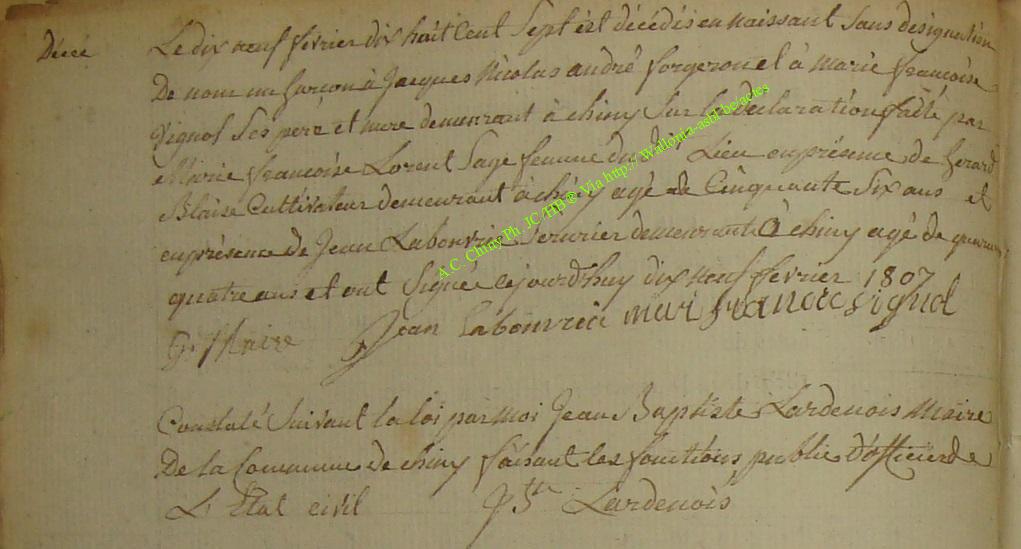 Décé
Le dix neuf février dix huit Cent Sept est décédés en naissant Sans désignation
De nom un Garcon à Jacques Nicolas andré forgeron et à marie françoise
Vignol Ses pere et mere demeurant à chiny Sur la declaration faite par
Marie françoise Lorent Sage femme du dit Lieu en présence de Gerard
Blaise Cultivateur demeurant à chiny agé de Cinquante Six ans et
en présence de Jean Labouvrie Serurier demeurant à chiny agé de
quatre ans et ont Signée cejourd'huy dix neuf fevrier 1807
Jean Labouvrie mari françoise vignol
Constaté Suivant la loi par moi Jean Baptiste Lardenois Maire
De la Commune de chiny faisant les fonctions public d'officier de
L'Etat civil J Bte Lardenois
A.C. Chiny Ph. JC/HB ® Via http://Wallonia-asbl.be/actes